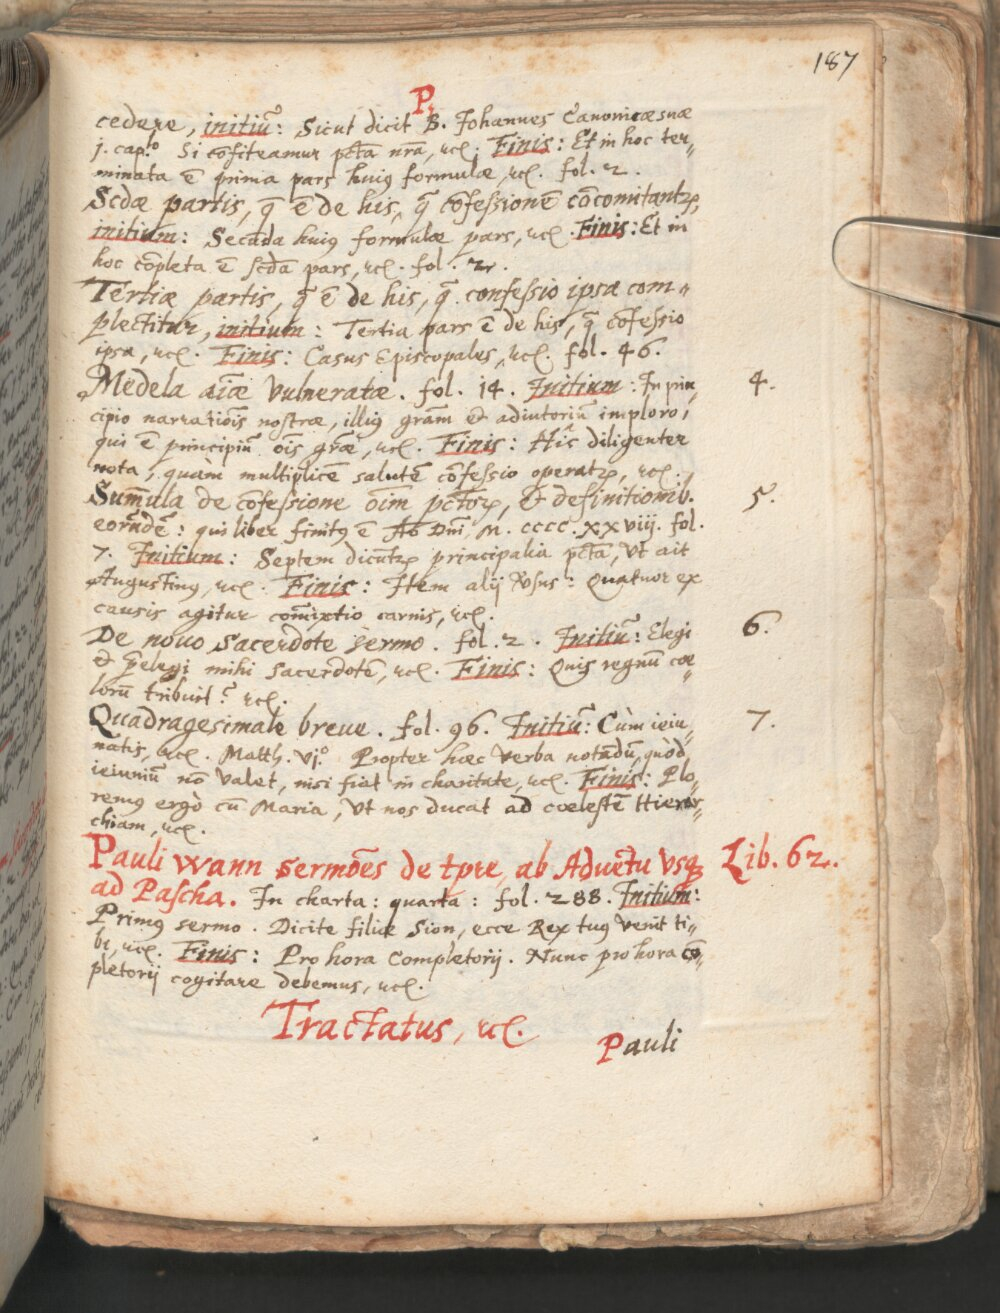 187
P.
cedure, initiũ: Sicut dicit B. Johannes Canonicæ suæ
j. cap.º Si cõfiteamur pctã nrã, ꝛcꝭ. Finis: Et in hoc ter„
minata ẽ prima pars huiꝰ formulæ, ꝛcꝭ. fol. 2.
Scdæ partis, q̃ ẽ de his, q̃ cõfeßionẽ cõcomitantꝛ,
initium: Secũda huiꝰ formulæ pars, ꝛcꝭ. Finis: Et in
hoc cõpleta ẽ scdã pars, ꝛcꝭ. fol. 2.
Tertiæ partis, q̃ ẽ de his, q̃ confessio ipsa com„
plectitur, initium: Tertia pars ẽ de his, q̃ cõfeßio
ipsa, ꝛcꝭ. Finis: Casus Episcopales, ꝛcꝭ. fol. 46.
Medela aĩæ vulneratæ. fol. 14. Initium: In prin„ 4.
cipio narratiõis nostræ, illiꝰ grãm et adiutoriũ imploro,
qui ẽ principiũ oĩs grãæ, ꝛcꝭ. Finis: Hĩc diligenter
nota, quam multiplicẽ salutẽ cõfessio operatꝛ, ꝛcꝭ.
Sum̃ula de cõfeßione oĩm pctõꝝ, et definitionib. 5.
eorũdẽ: qui liber finitꝰ ẽ Aõ Dnĩ, M. cccc. xxviij. fol.
7. Initium: Septem dicũtꝛ principalia pctã, vt ait
Augustinꝰ, ꝛcꝭ. Finis: Item alij v̓sus: Quatuor ex
causis agitur com̃ixtio carnis, ꝛcꝭ.
De nouo Sacerdote sermo. fol. 2. Initiũ: Elegi 6.
et p̃elegi mihi sacerdotẽ, ꝛcꝭ. Finis: Quis regnũ cœ„
lorũ tribuit? ꝛcꝭ.
Quadragesimale breue. fol. 96. Initiũ: Cùm ieiu„ 7.
natis, ꝛcꝭ. Matth. vjº. Propter hæc verba notãdũ, quòd
ieiuniũ nõ valet, nisi fiat in charitate, ꝛcꝭ. Finis: Plo„
remꝰ ergò cũ Maria, vt nos ducat ad cœlestẽ Hierar„
chiam, ꝛcꝭ.
Pauli Wann sermões de tpre, ab Aduẽtu vsqꝫ Lib. 62.
ad Pascha. In charta: quarta: fol. 288. Initium:
Primꝰ sermo. Dicite filiæ Sion, ecce Rex tuꝰ venit ti„
bi, ꝛcꝭ. Finis: Pro hora Completorij. Nunc pro hora cõ„
pletorij cogitare debemus, ꝛcꝭ.
Tractatus, ꝛcꝭ.
Pauli